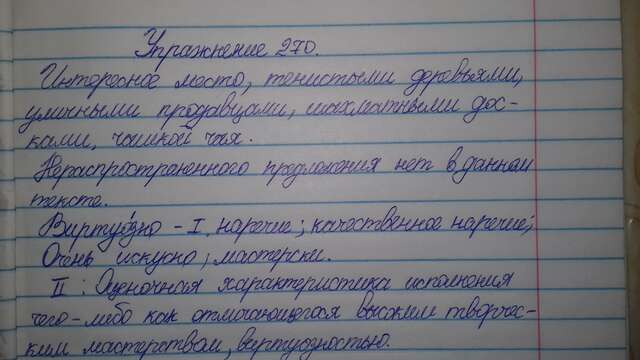 Упражнение 270.
Интересное место, тенистыми деревьями,
уличными продавцами, шахматными дос-
ками, чашкой чая.
Нераспространенного предложения нет в данном
тексте.
Виртуо́зно - I. наречие; качественное наречие;
Очень искусно; мастерски.
II: Оценочная характеристика исполнения
чего-либо как отличающегося высоким творчес-
ким мастерством, виртуозностью.